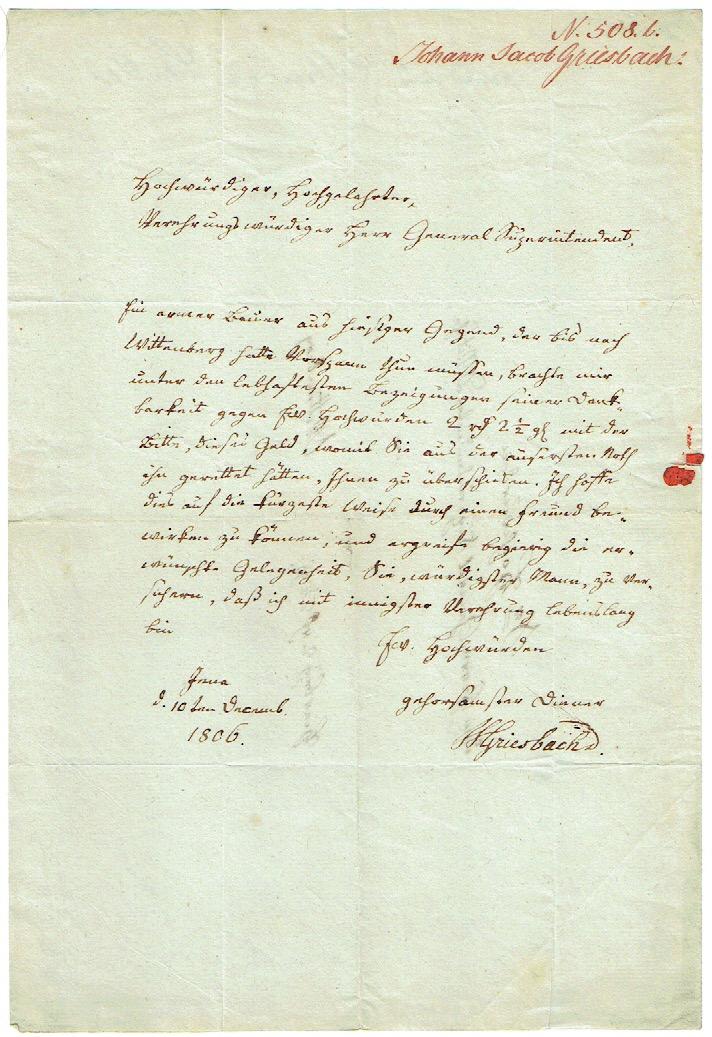 N. 508. b.
Johann Jacob Griesbach.
Hochwürdiger, Hochgelahrter,
Verehrungswürdiger Herr General Superintendent,
Ein armer Bauer aus hiesiger Gegend, der bis nach
Wittenberg hatte Vorspann thun müssen, brachte mir
unter den lebhaftesten Bezeigungen seiner Dank-
barkeit gegen Ew. Hochwürden 2 rf 2 ½ gl mit der
Bitte, dieses Geld, womit Sie aus der äusersten Noth
ihn gerettet hätten, Ihnen zu überschicken. Ich hoffe
dies auf die kürzeste Weise durch einen Freund be-
wirken zu können, und ergreife begierig die er-
wünschte Gelegenheit, Sie, würdigster Mann, zu ver-
sichern, daß ich mit innigster Verehrung lebenslang
bin
Ew. Hochwürden
Jena
d. 10ten Decemb.
1806.
gehorsamster Diener
Griesbach D.